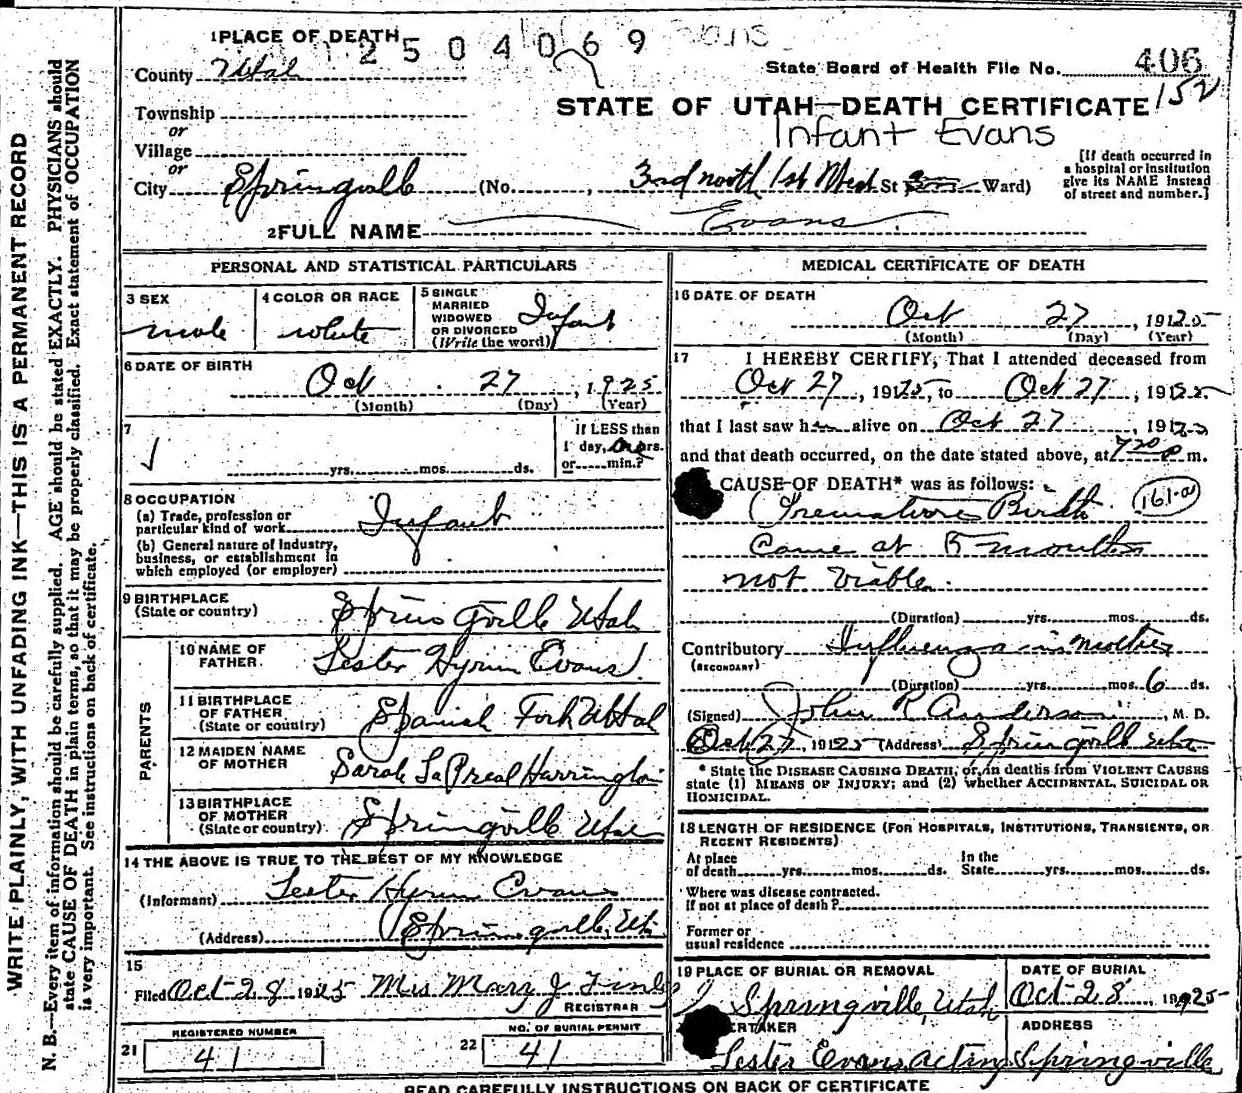 WRITE PLAINLY, WITH UNFADING INK—THIS IS A PERMANENT RECORD
N. B.—Every item of information should be carefully supplied. AGE should be stated EXACTLY. PHYSICIANS should
state CAUSE OF DEATH in plain terms, so that it may be properly classified. Exact statement of OCCUPATION
is very important. See instructions on back of certificate.
2504069
1 PLACE OF DEATH
County Utah
State Board of Health File No. 406
152
STATE OF UTAH—DEATH CERTIFICATE
Infant Evans
Township
or
Village
or
City Springville (No. , 3rd north 1st West St Ward)
[If death occurred in
a hospital or institution
give its NAME instead
of street and number.]
2 FULL NAME Evans
PERSONAL AND STATISTICAL PARTICULARS
3 SEX male
4 COLOR OR RACE white
5 SINGLE
MARRIED
WIDOWED
OR DIVORCED
(Write the word) Infant
6 DATE OF BIRTH
Oct 27, 1925
(Month) (Day) (Year)
7
yrs. mos. ds.
If LESS than
1 day, hrs.
or min.?
8 OCCUPATION
(a) Trade, profession or
particular kind of work Infant
(b) General nature of Industry,
business, or establishment in
which employed (or employer)
9 BIRTHPLACE
(State or country) Springville Utah
PARENTS
10 NAME OF
FATHER Lester Hyrum Evans
11 BIRTHPLACE
OF FATHER
(State or country) Spanish Fork Utah
12 MAIDEN NAME
OF MOTHER Sarah LaPreal Harrington
13 BIRTHPLACE
OF MOTHER
(State or country) Springville Utah
14 THE ABOVE IS TRUE TO THE BEST OF MY KNOWLEDGE
(Informant) Lester Hyrum Evans
(Address) Springville, Ut.
15
Filed Oct-28 1925 Mrs Mary J
REGISTRAR
REGISTERED NUMBER
21 41
NO. OF BURIAL PERMIT
22 41
MEDICAL CERTIFICATE OF DEATH
16 DATE OF DEATH
Oct 27, 1925
(Month) (Day) (Year)
17 I HEREBY CERTIFY, That I attended deceased from
Oct 27, 1925, to Oct 27, 1925
that I last saw him alive on Oct 27, 1925
and that death occurred, on the date stated above, at 720 P m.
CAUSE OF DEATH* was as follows:
Premature Birth 161-a
Came at 5 months
not Viable.
(Duration) yrs. mos. ds.
Contributory Influenza in mother
(SECONDARY)
(Duration) yrs. mos. 6 ds.
(Signed) John R Anderson, M. D.
Oct 27, 1925 (Address) Springville Utah
* State the DISEASE CAUSING DEATH; or, in deaths from VIOLENT CAUSES
state (1) MEANS OF INJURY; and (2) whether ACCIDENTAL, SUICIDAL OR
HOMICIDAL.
18 LENGTH OF RESIDENCE (FOR HOSPITALS, INSTITUTIONS, TRANSIENTS, OR
RECENT RESIDENTS)
At place
of death yrs. mos. ds.
In the
State yrs. mos. ds.
Where was disease contracted.
If not at place of death?
Former or
usual residence
19 PLACE OF BURIAL OR REMOVAL
Springville, Utah
DATE OF BURIAL
Oct-28, 1925
ERTAKER
Lester Evans acting
ADDRESS
Springville
READ CAREFULLY INSTRUCTIONS ON BACK OF CERTIFICATE